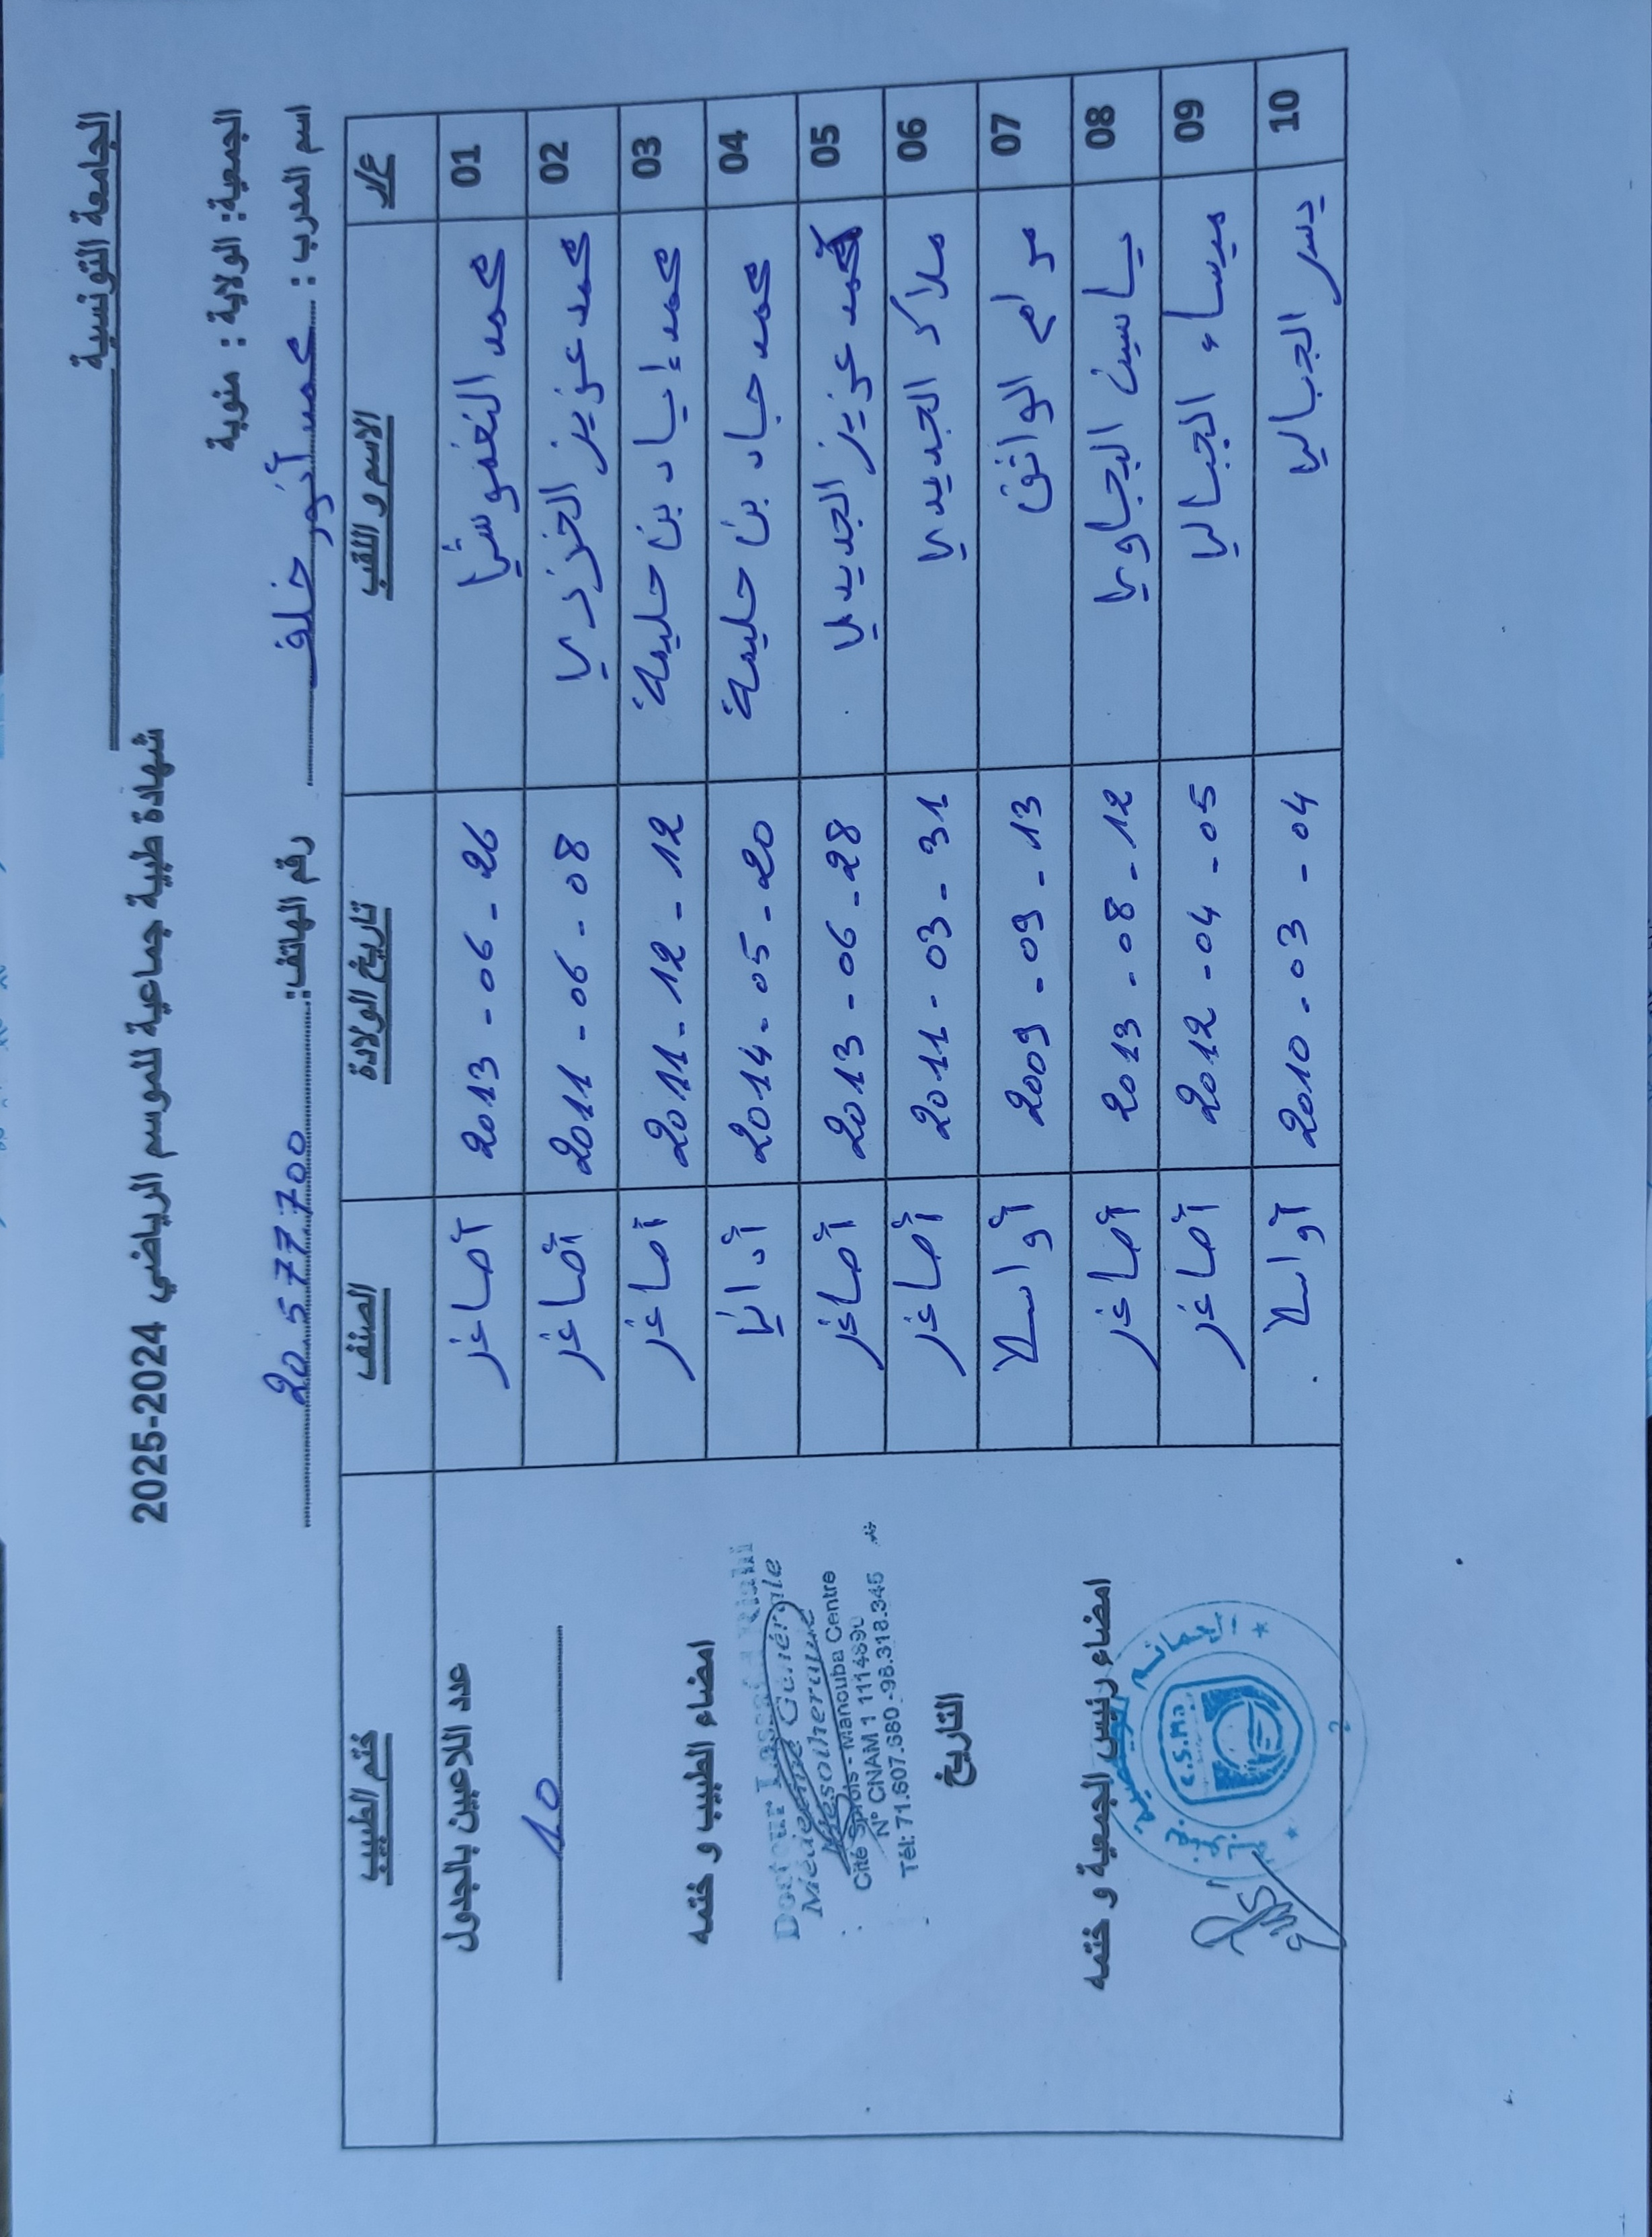 الجامعة التونسية
شهادة طبية جماعية للموسم الرياضي 2024-2025
الجمعية: الولاية : منوبة
اسم المدرب : محمد أنور خلف رقم الهاتف: 20577700
ع/ر الاسم و اللقب تاريخ الولادة الصنف ختم الطبيب
01 محمد النغموشي 2013-06-26 أصاغر
02 محمد عزيز الخزري 2011-06-08 أصاغر
03 محمد إياد بن حليمة 2011-12-12 أصاغر
04 محمد جاد بن حليمة 2014-05-20 أداني
05 محمد عزيز الجديدي 2013-06-28 أصاغر
06 ملاك الجديدي 2011-03-31 أصاغر
07 مرام الواثق 2009-09-13 أواسط
08 ياسين البجاوي 2013-08-12 أصاغر
09 ميساء الجبالي 2012-04-05 أصاغر
10 يسر الجبالي 2010-03-04 أواسط
عدد اللاعبين بالجدول
10
امضاء الطبيب و ختمه
Docteur Lassad Riahi
Médecine Générale
Mésothérapie
Cité Sprols - Manouba Centre
N° CNAM 1 1114890
Tél: 71.607.680 -98.318.345
التاريخ
امضاء رئيس الجمعية و ختمه
C.S.Ma